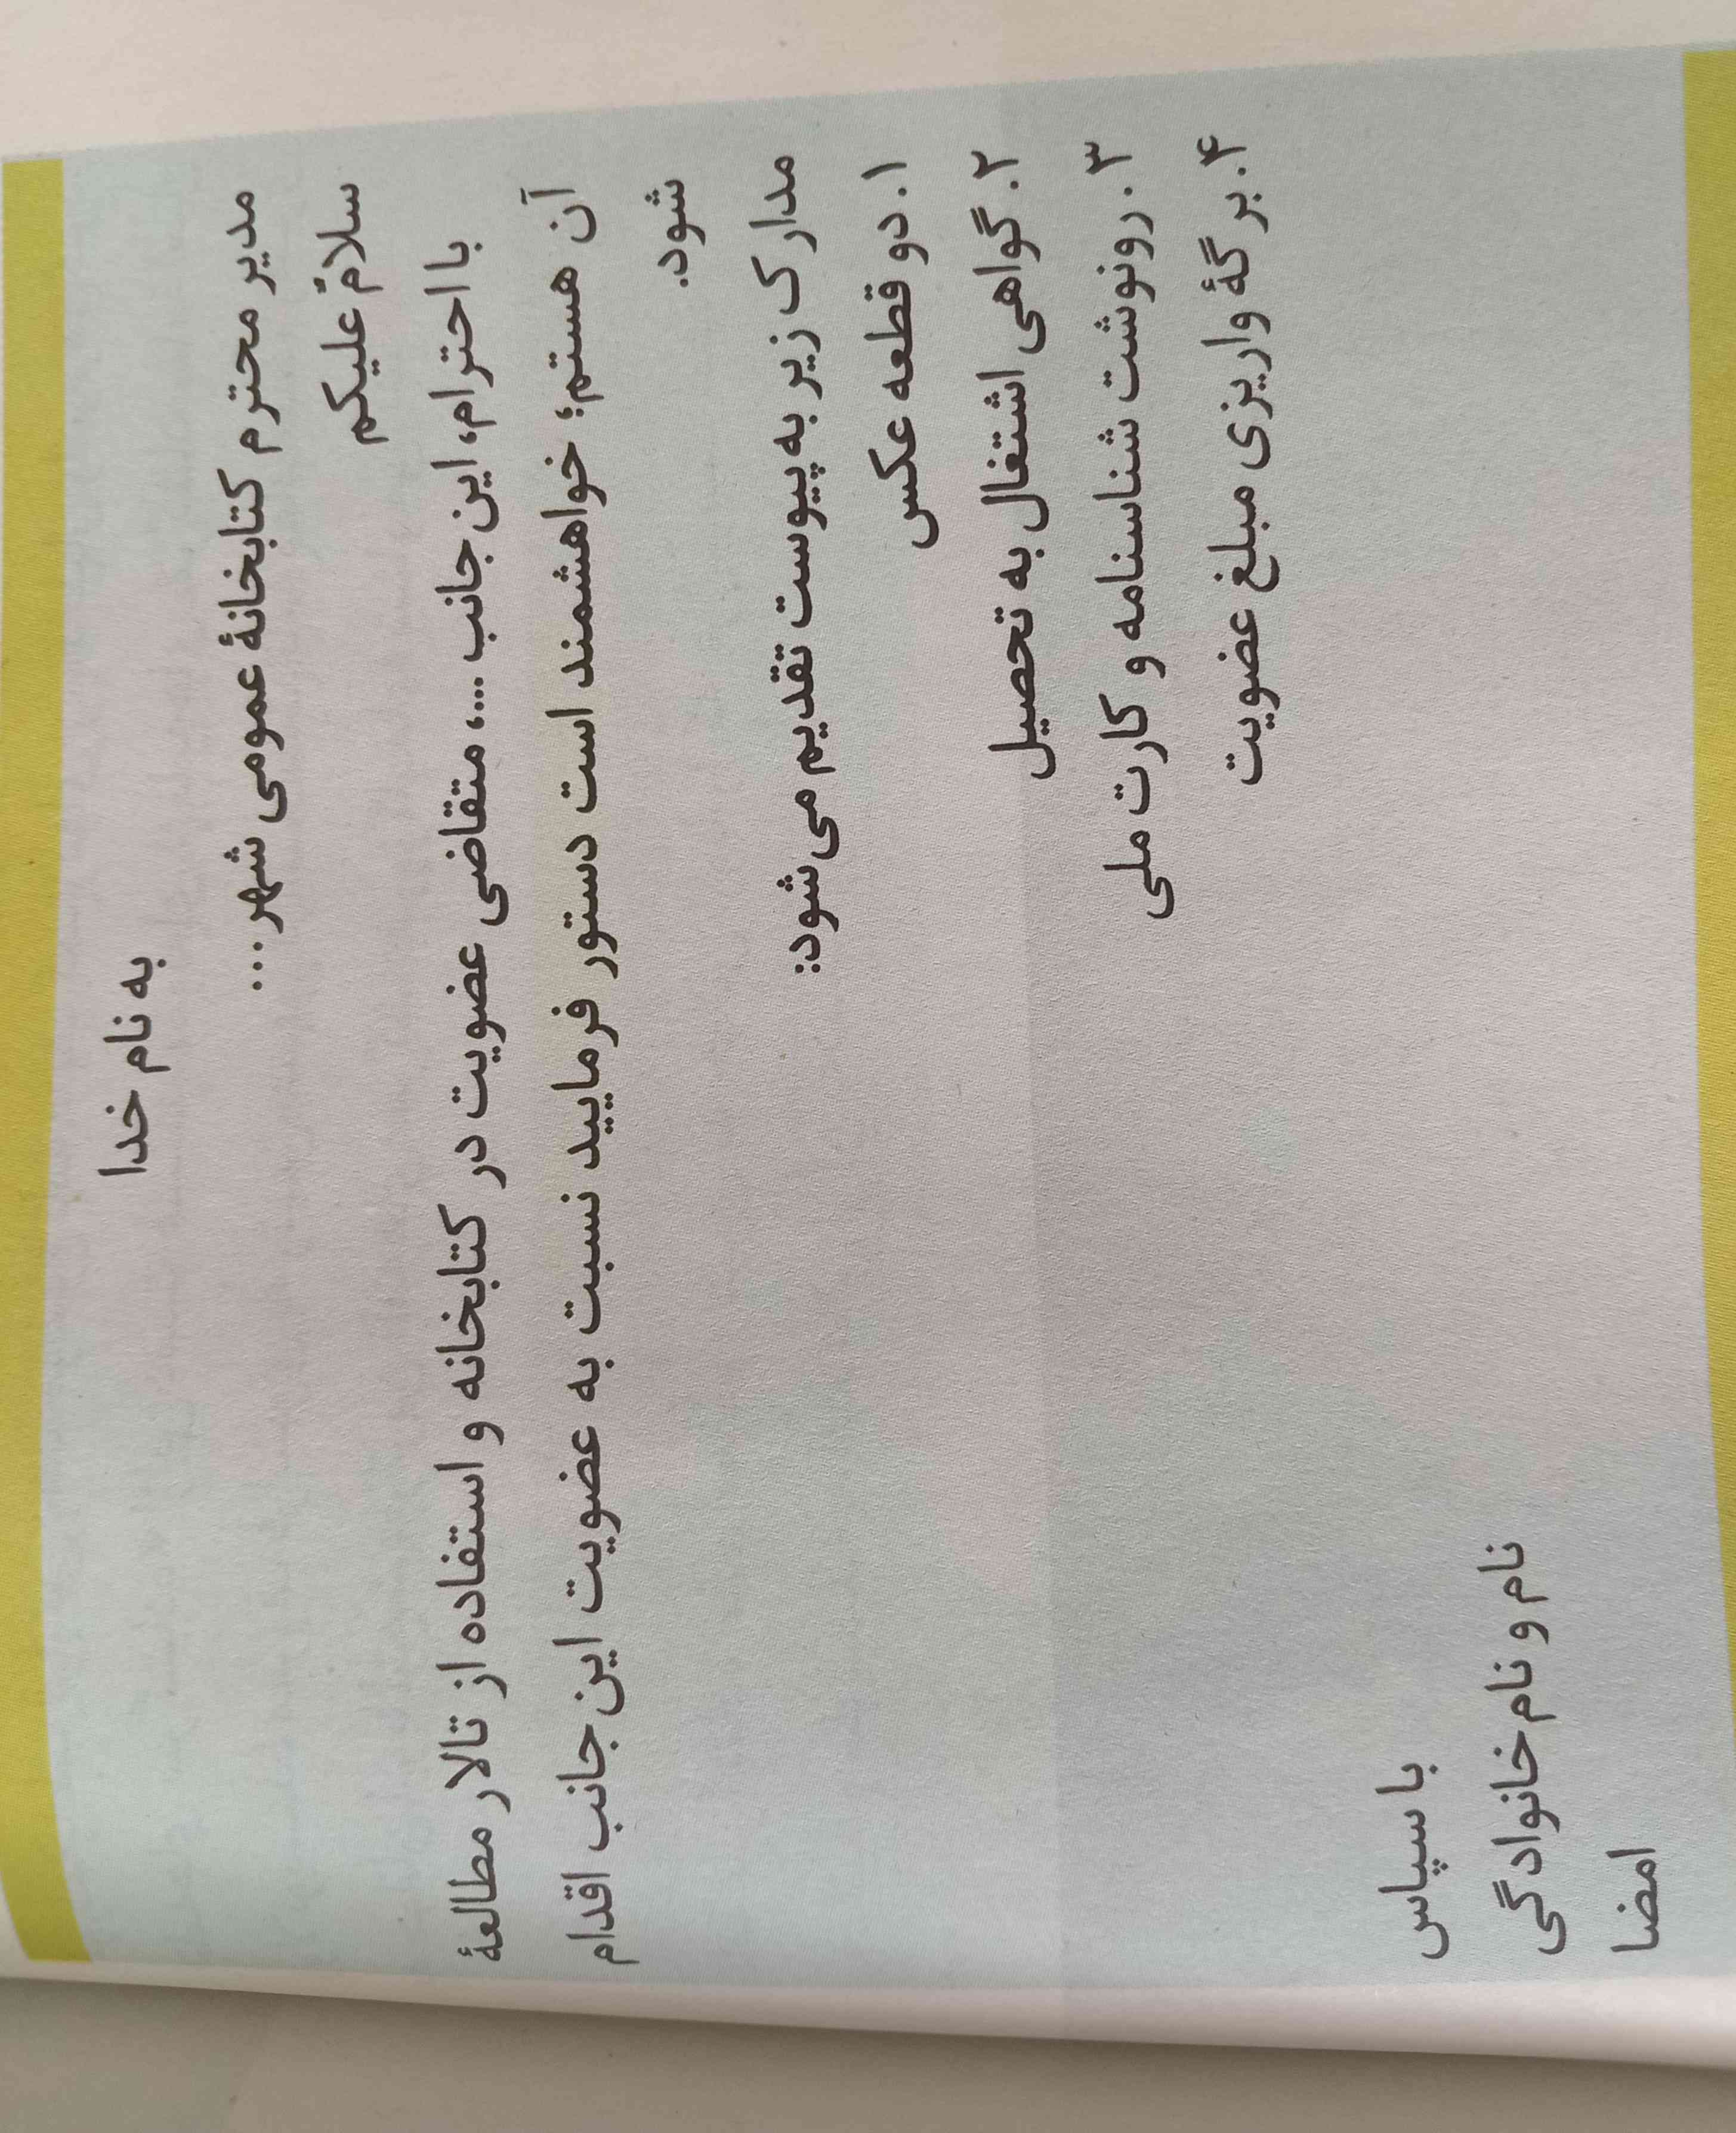 به نام خدا
مدیر محترم کتابخانهٔ عمومی شهر...
سلامٌ علیکم
با احترام، این جانب ....، متقاضی عضویت در کتابخانه و استفاده از تالار مطالعهٔ
آن هستم؛ خواهشمند است دستور فرمایید نسبت به عضویت این جانب اقدام
شود.
مدارک زیر به پیوست تقدیم می‌شود:
۱. دو قطعه عکس
۲. گواهی اشتغال به تحصیل
۳. رونوشت شناسنامه و کارت ملی
۴. برگهٔ واریزی مبلغ عضویت
با سپاس
نام و نام خانوادگی
امضا